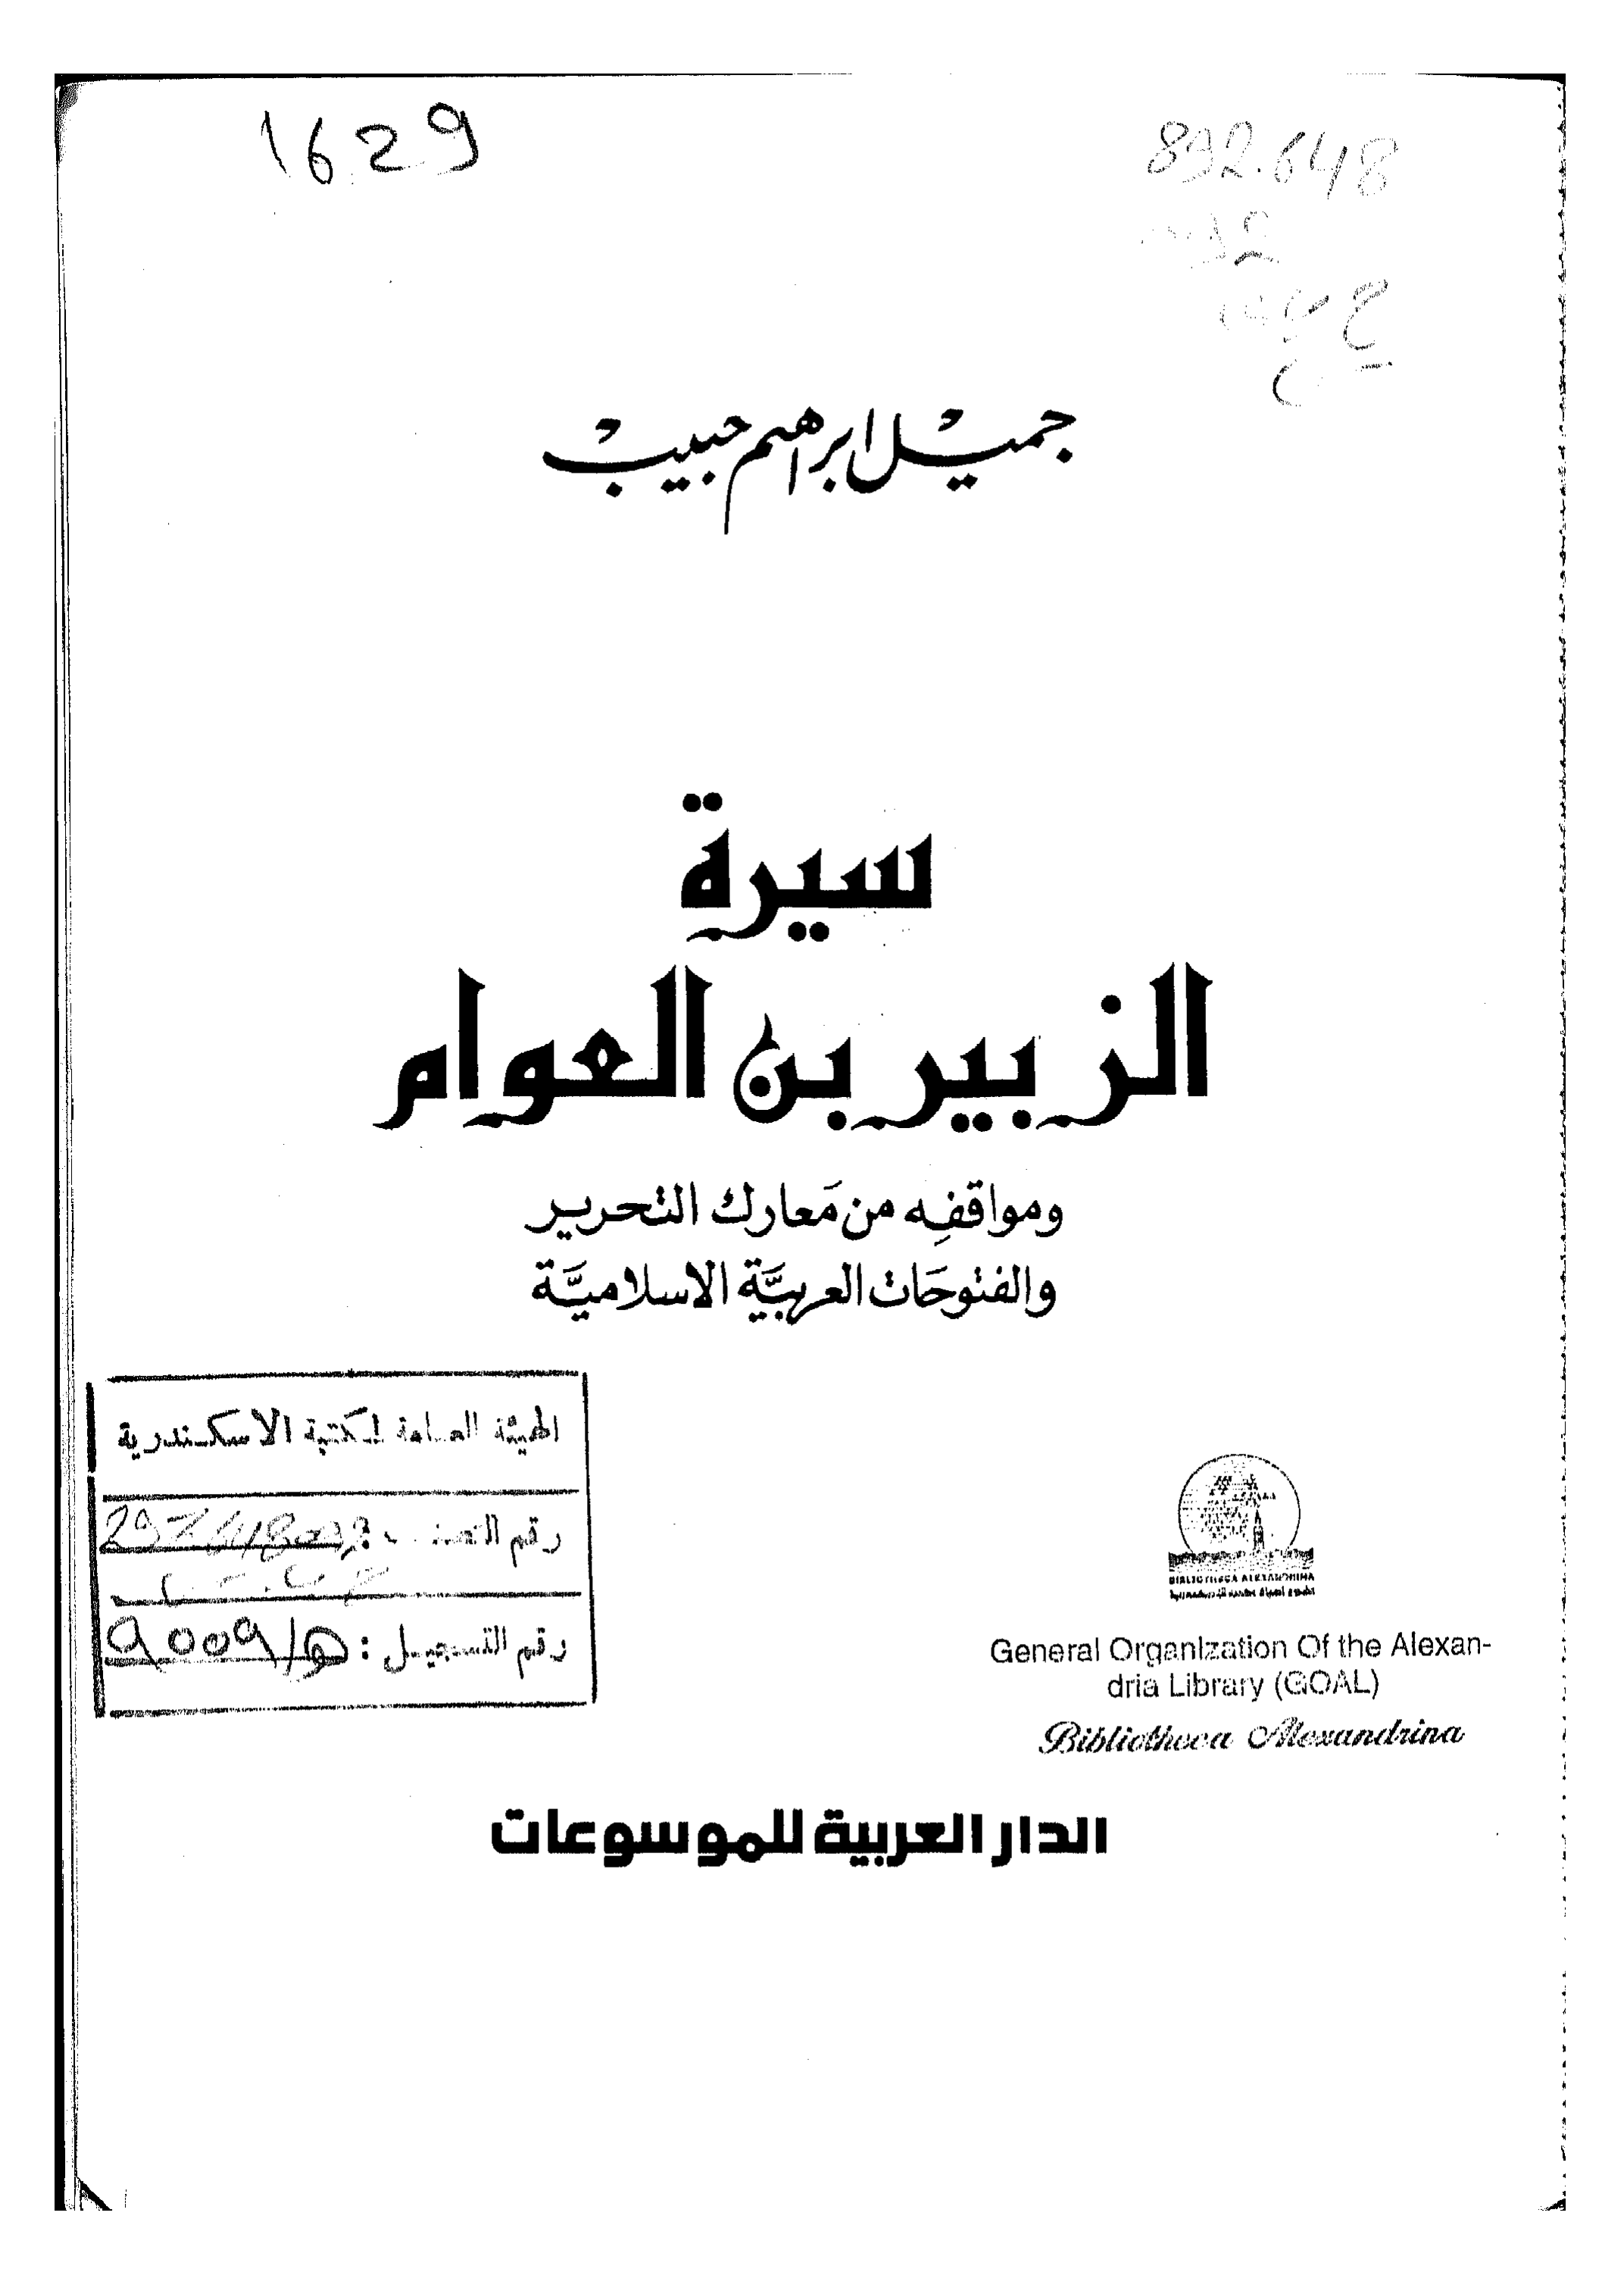 1629
892.648
جميل ابرهيم حبيب
سيرة
الزبير بن العوام
ومواقفِه من مَعارك التحرير
والفتوحَات العربيَّة الاسلاميَّة
الهيئة العامة لمكتبة الاسكندرية
رقم
رقم التسجيل : 9009/ه
BIBLIOTHECA ALEXANDRINA
General Organization Of the Alexan-
dria Library (GOAL)
Bibliotheca Alexandrina
الدار العربية للموسوعات